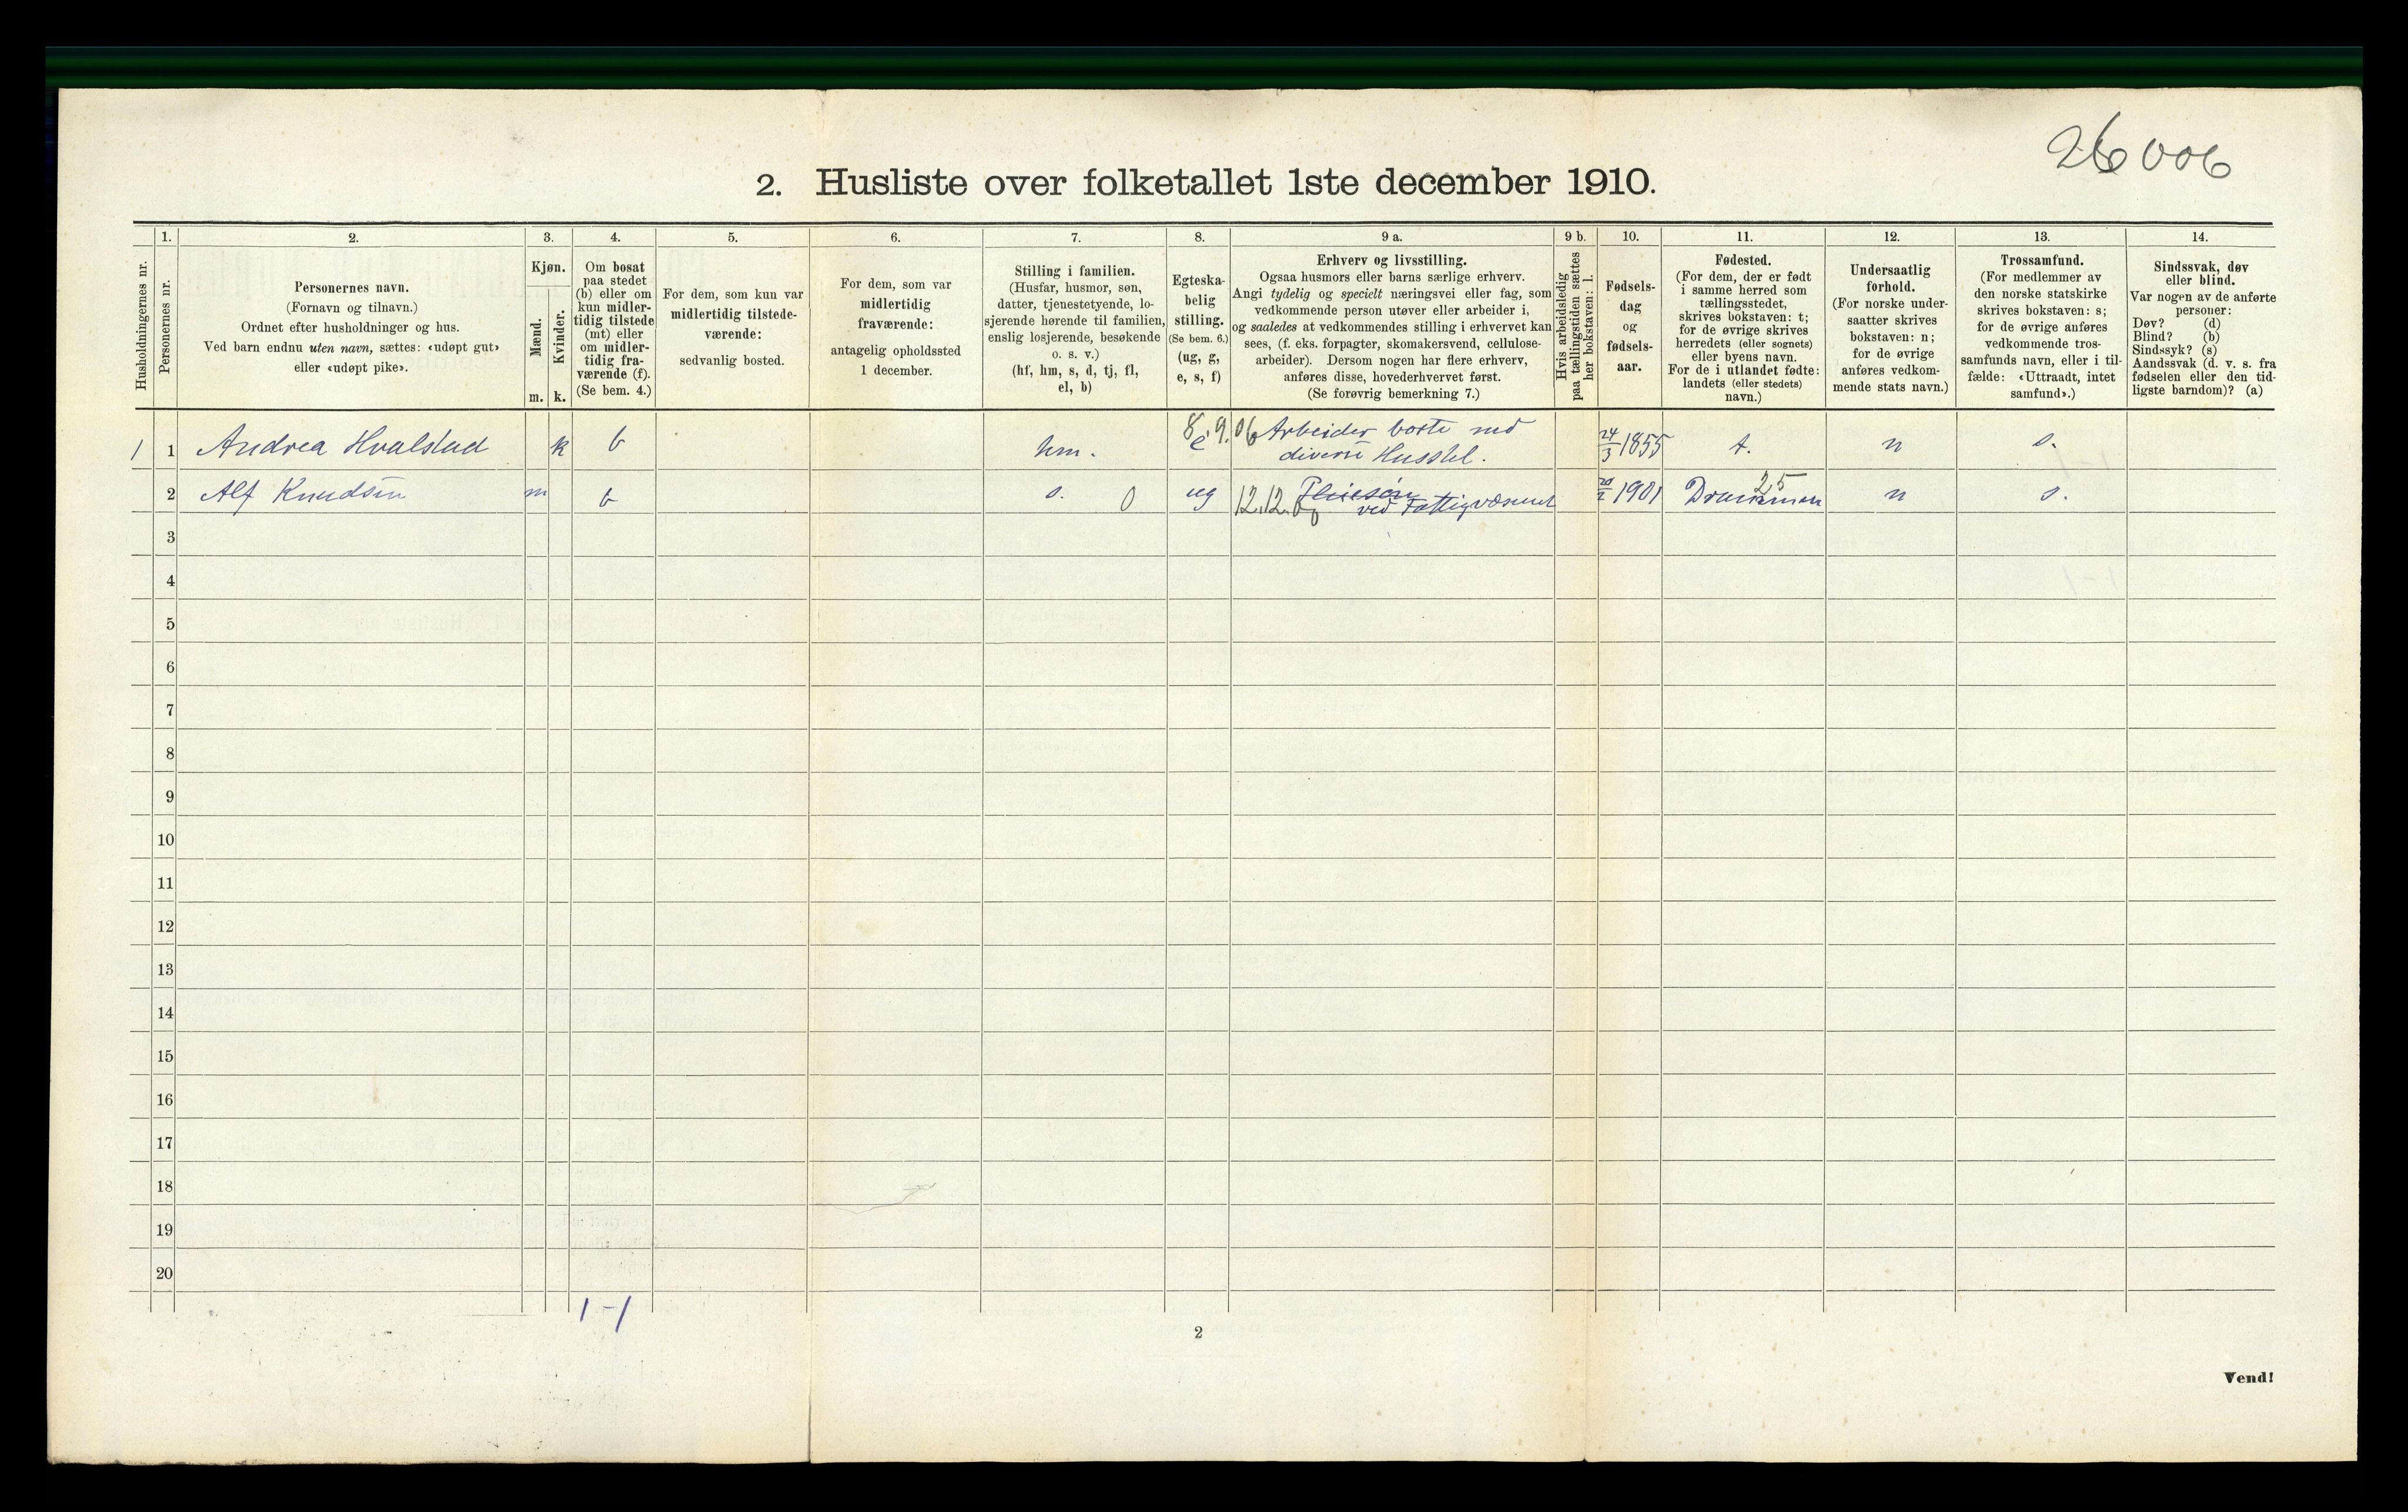 26006
2. Husliste over folketallet 1ste december 1910.
Husholdningernes nr.
1.
Personernes nr.
2.
Personernes navn.
(Fornavn og tilnavn.)
Ordnet efter husholdninger og hus.
Ved barn endnu uten navn, sættes: «udøpt gut»
eller «udøpt pike».
3.
Kjøn.
Mænd.
Kvinder.
m. k.
4.
Om bosat
paa stedet
(b) eller om
kun midler-
tidig tilstede
(mt) eller
om midler-
tidig fra-
værende (f).
(Se bem. 4.)
5.
For dem, som kun var
midlertidig tilstede-
værende:
sedvanlig bosted.
6.
For dem, som var
midlertidig
fraværende:
antagelig opholdssted
1 december.
7.
Stilling i familien.
(Husfar, husmor, søn,
datter, tjenestetyende, lo-
sjerende hørende til familien,
enslig losjerende, besøkende
o. s. v.)
(hf, hm, s, d, tj, fl,
el, b)
8.
Egteska-
belig
stilling.
(Se bem. 6.)
(ug, g,
e, s, f)
9 a.
Erhverv og livsstilling.
Ogsaa husmors eller barns særlige erhverv.
Angi tydelig og specielt næringsvei eller fag, som
vedkommende person utøver eller arbeider i,
og saaledes at vedkommendes stilling i erhvervet kan
sees, (f. eks. forpagter, skomakersvend, cellulose-
arbeider). Dersom nogen har flere erhverv,
anføres disse, hovederhvervet først.
(Se forøvrig bemerkning 7.)
9 b.
Hvis arbeidsledig
paa tællingstiden sættes
her bokstaven: l.
10.
Fødsels-
dag
og
fødsels-
aar.
11.
Fødested.
(For dem, der er født
i samme herred som
tællingsstedet,
skrives bokstaven: t;
for de øvrige skrives
herredets (eller sognets)
eller byens navn.
For de i utlandet fødte:
landets (eller stedets)
navn.)
12.
Undersaatlig
forhold.
(For norske under-
saatter skrives
bokstaven: n;
for de øvrige
anføres vedkom-
mende stats navn.)
13.
Trossamfund.
(For medlemmer av
den norske statskirke
skrives bokstaven: s;
for de øvrige anføres
vedkommende tros-
samfunds navn, eller i til-
fælde: «Uttraadt, intet
samfund».)
14.
Sindssvak, døv
eller blind.
Var nogen av de anførte
personer:
Døv? (d)
Blind? (b)
Sindssyk? (s)
Aandssvak (d. v. s. fra
fødselen eller den tid-
ligste barndom)? (a)
1 1 Andrea Hvalstad k b hm. e 8.9.06 Arbeider borte med
diverse Husstel. 24/3 1855 t. n s.
2 Alf Knudsen m b s. 0 ug 12.12.
ved Fattigvæsenet 1901 Drammen 25 n s.
3
4
5
6
7
8
9
10
11
12
13
14
15
16
17
18
19
20
1-1
2
Vend!